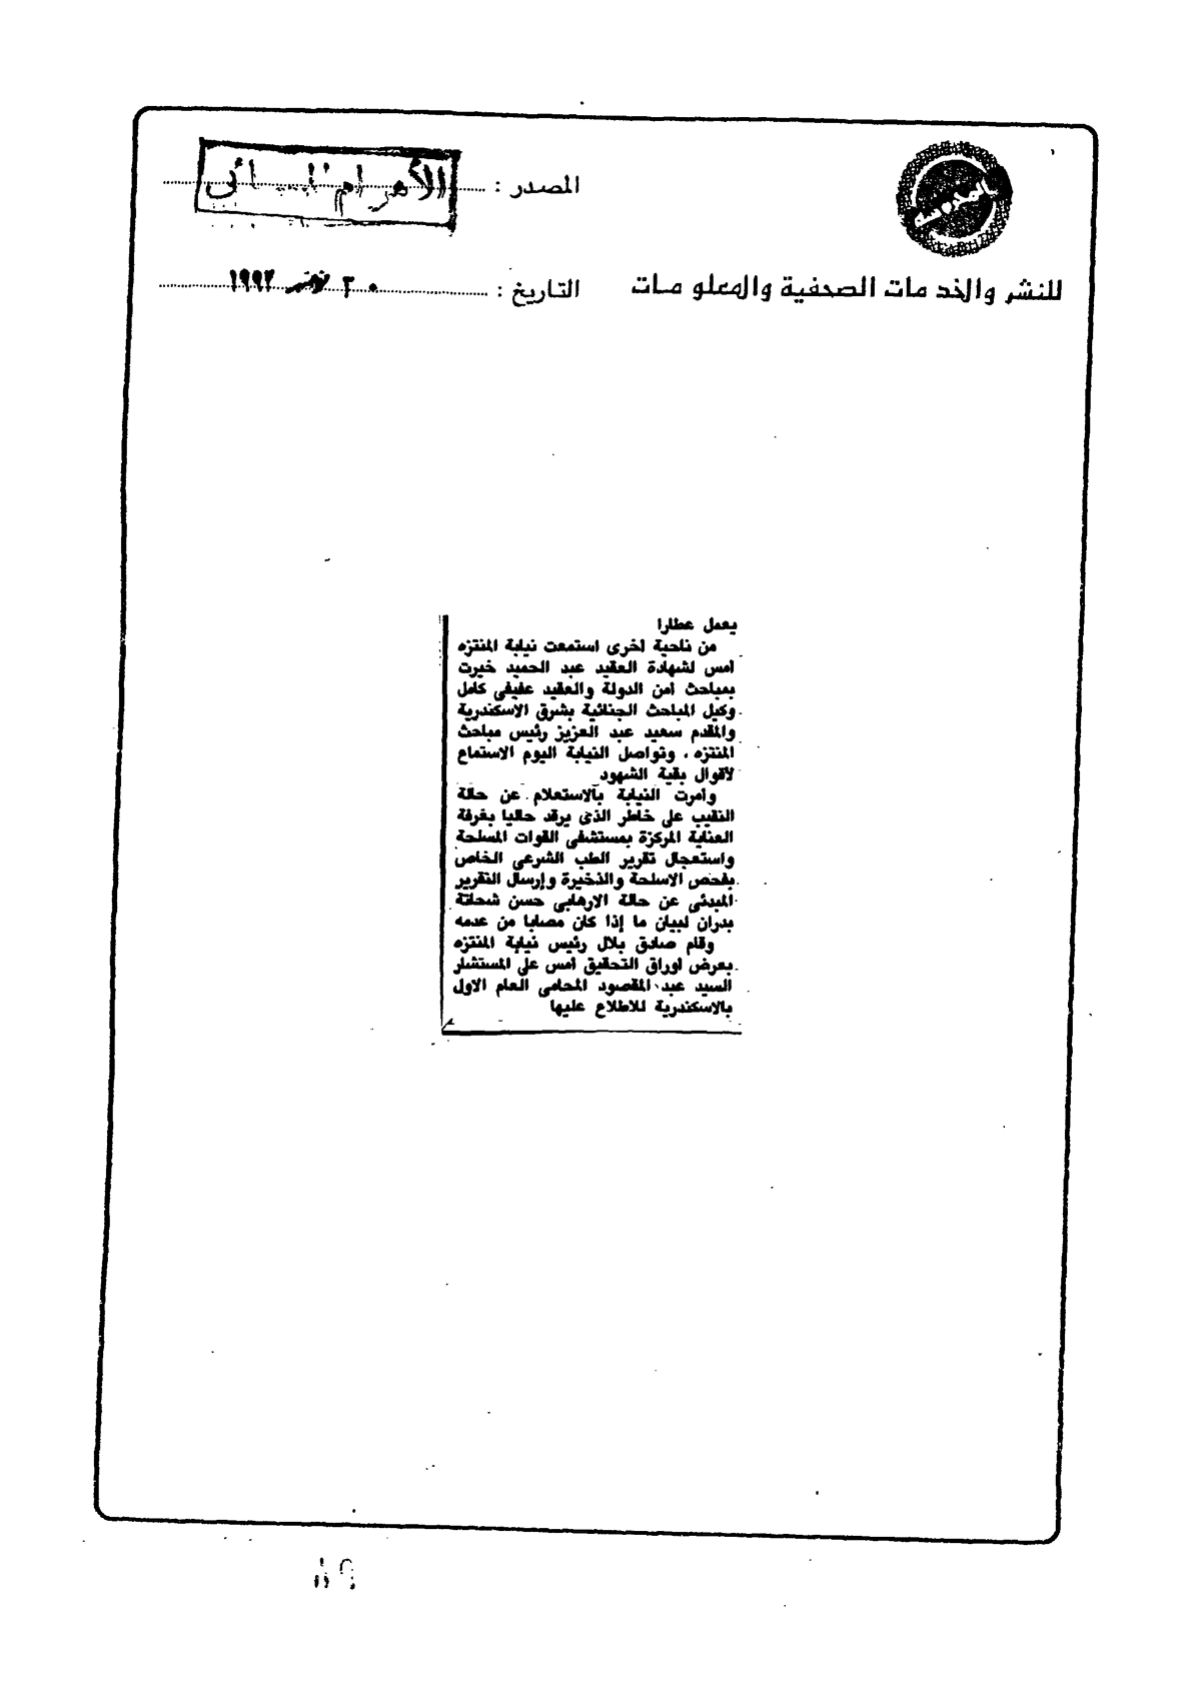 المصدر : الأهرام
للنشر والخدمات الصحفية والمعلومات
التاريخ : ٢٠ نوفمبر ١٩٩٢
يعمل عطارا
من ناحية اخرى استمعت نيابة المنتزه
امس لشهادة العقيد عبد الحميد خيرت
بمباحث امن الدولة والعقيد عفيفى كامل
وكيل المباحث الجنائية بشرق الاسكندرية
والمقدم سعيد عبد العزيز رئيس مباحث
المنتزه ، وتواصل النيابة اليوم الاستماع
لاقوال بقية الشهود
وامرت النيابة بالاستعلام عن حالة
النقيب على خاطر الذى يرقد حاليا بغرفة
العناية المركزة بمستشفى القوات المسلحة
واستعجال تقرير الطب الشرعى الخاص
بفحص الاسلحة والذخيرة وإرسال التقرير
المبدئى عن حالة الارهابى حسن شحاتة
بدران لبيان ما إذا كان مصابا من عدمه
وقام صادق بلال رئيس نيابة المنتزه
بعرض اوراق التحقيق امس على المستشار
السيد عبد المقصود المحامى العام الاول
بالاسكندرية للاطلاع عليها